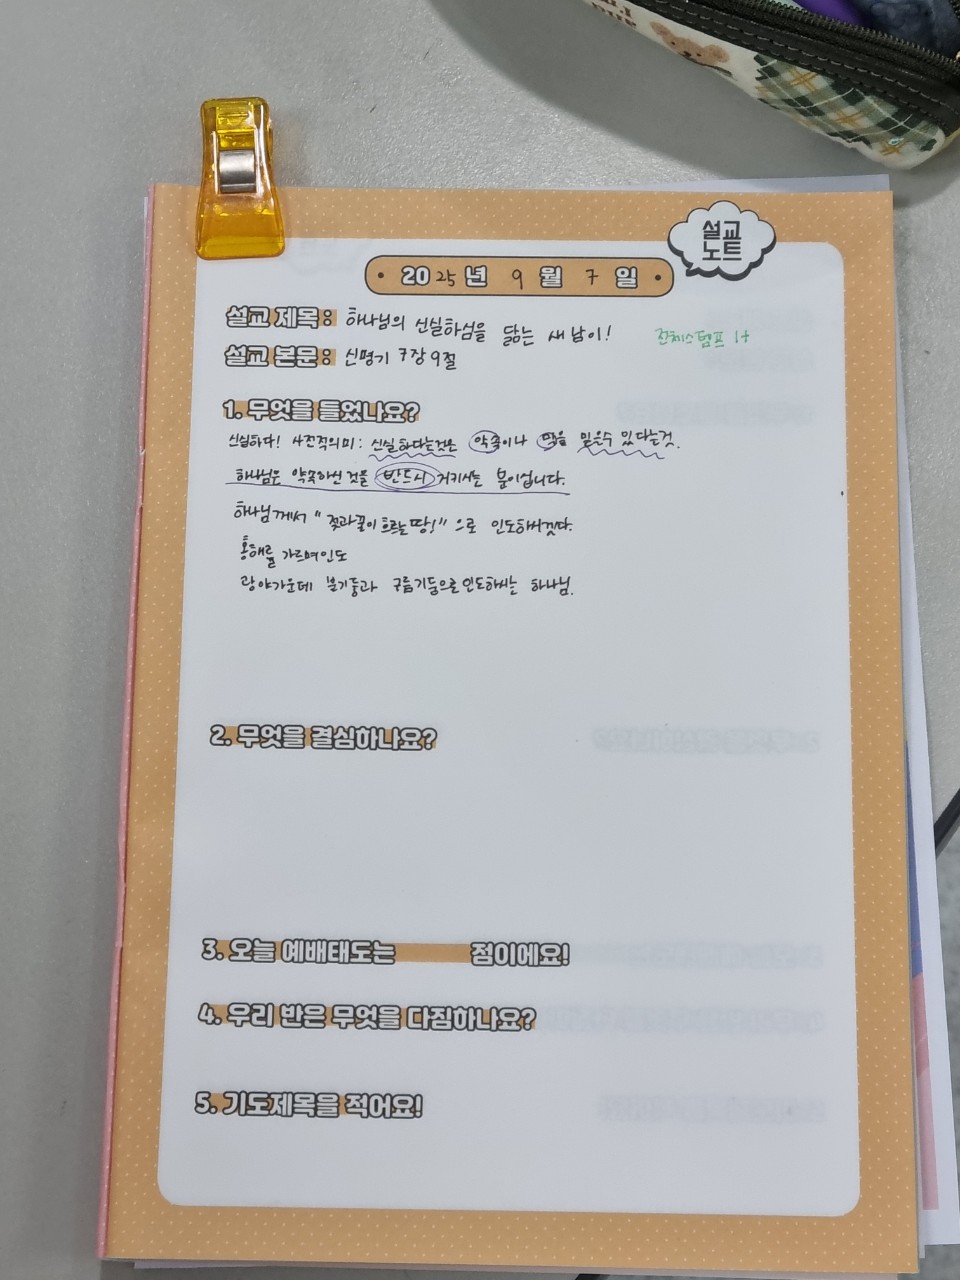 설교
노트
2025년 9월 7일
설교 제목: 하나님의 신실하심을 닮는 새남이!
전체스탬프 1+
설교 본문: 신명기 7장 9절
1. 무엇을 들었나요?
신실하다! 사전적의미: 신실하다는것은 약속이나 말을 믿을수 있다는것.
하나님은 약속하신 것을 반드시 지키시는 분이십니다.
하나님께서 "젖과꿀이 흐르는 땅!" 으로 인도하시겠다.
홍해를 가르며인도
광야가운데 불기둥과 구름기둥으로 인도하시는 하나님.
2. 무엇을 결심하나요?
3. 오늘 예배태도는 점이에요!
4. 우리 반은 무엇을 다짐하나요?
5. 기도제목을 적어요!